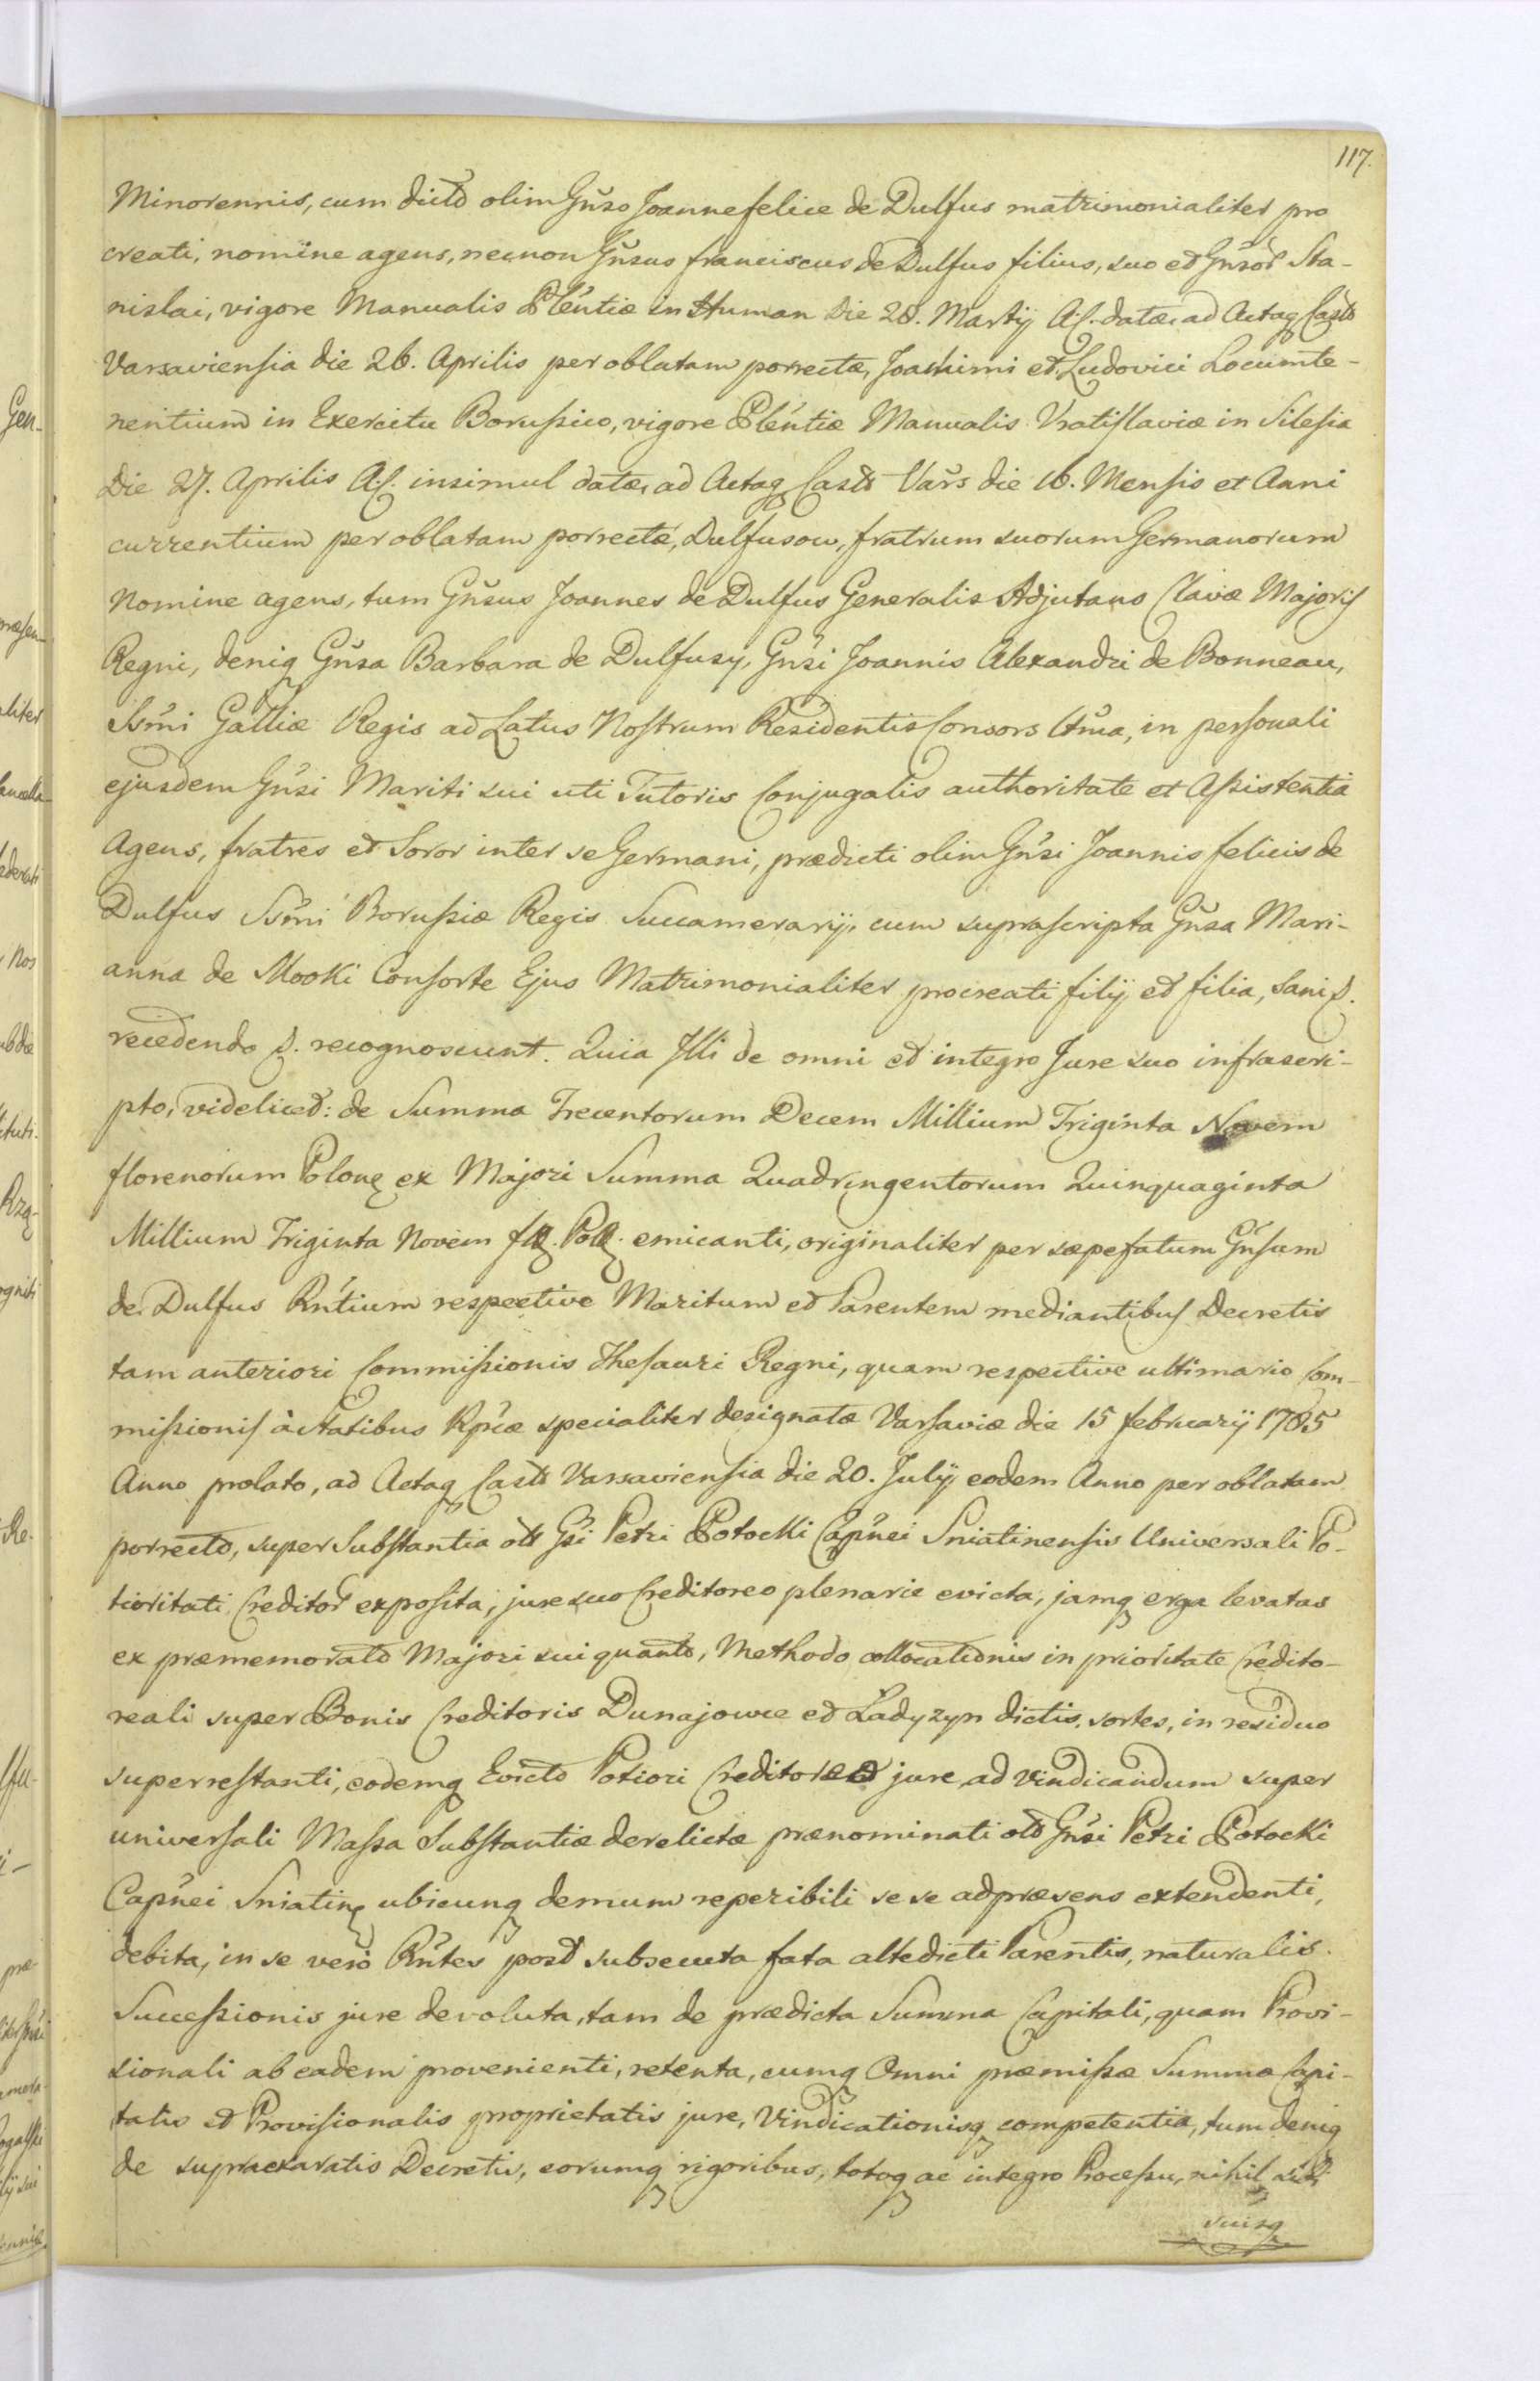 117.
Minorennis, cum dicto olim Gnso Joanne felice de Dulfus matrimonialiter pro
creati, nomine agens, necnon Gnsus franciscus de Dulfus filius, suo et Gnsor Sta-
nislai, vigore Manualis Plentiæ in Human Die 28. Martij A.C. datæ, ad Actaq Casts
Varsaviensia die 26. Aprilis per oblatam porrectæ, Joachimi et Ludovici Locumte-
nentium in Exercitu Borussico, vigore Plentiæ Manualis Vratislaviæ in Silesia
Die 27. Aprilis A.C. insimul datæ, ad Actaq Casts Vars die 16. Mensis et Anni
currentium per oblatam porrectæ, Dulfusow, fratrum suorum Germanorum
Nomine agens, tum Gnsus Joannes de Dulfus Generalis Adjutans Clavæ Majoris
Regni, deniq Gnsa Barbara de Dulfusy, Gnsi Joannis Alexandri de Bonneau,
Ssmi Galliæ Regis ad Latus Nostrum Residentis Consors Ltma, in personali
ejusdem Gnsi Mariti sui uti Tutoris Conjugalis authoritate et Assistentia
Agens, fratres et Soror inter se Germani, prædicti olim Gnsi Joannis felicis de
Dulfus Ssmi Borussiæ Regis Succamerarij, cum suprascripta Gnsa Mari-
anna de Mocki Consorte Ejus Matrimonialiter procreati filij et filia, sani p.
recedendo p. recognoscunt. Quia Illi de omni et integro Jure suo infrascri-
pto, videlicet: de Summa Trecentorum Decem Millium Triginta Novem
florenorum Polonq ex Majori Summa Quadringentorum Quinquaginta
Millium Triginta Novem flq. Polq. emicanti, originaliter per sæpefatum Gnsum
de Dulfus Rntium respective Maritum et Parentem mediantibus Decretis
tam anteriori Commissionis Thesauri Regni, quam respective ultimario Com-
missionis à Statibus Rpcæ specialiter designatæ Varsaviæ die 15 februarij 1785
Anno prolato, ad Actaq Casts Varsaviensia die 20. Julij eodem Anno per oblatam
porrecto, super Substantia ols Gsi Petri Potocki Capnei Sniatinensis Universali Po-
tioritati Creditor exposita, jure suo Creditoreo plenarie evicta, jamq erga levatas
ex præmemorato Majori sui quanto, Methodo collocationis in prioritate Credito-
reali super Bonis Creditoris Dunajowce et Ladyzyn dictis, sortes, in residuo
superrestanti, eodemq Evicto Potiori Creditoreo jure, ad vindicandum super
universali Massa Substantiæ derelictæ prænominati ols Gnsi Petri Potocki
Capnei Sniatinq ubicunq demum reperibili se se adpræsens extendenti,
debita, in se vero Rntes post subsecuta fata altedicti Parentis, naturalis
Successionis jure devoluta, tam de prædicta Summa Capitali, quam Provi-
sionali ab eadem provenienti, retenta, cumq Omni præmissæ Summæ Capi-
talis et Provisionalis proprietatis jure, Vindicationisq competentia, tum deniq
de supraexaratis Decretis, eorumq rigoribus, totoq ac integro Processu, nihil sibi
suisq